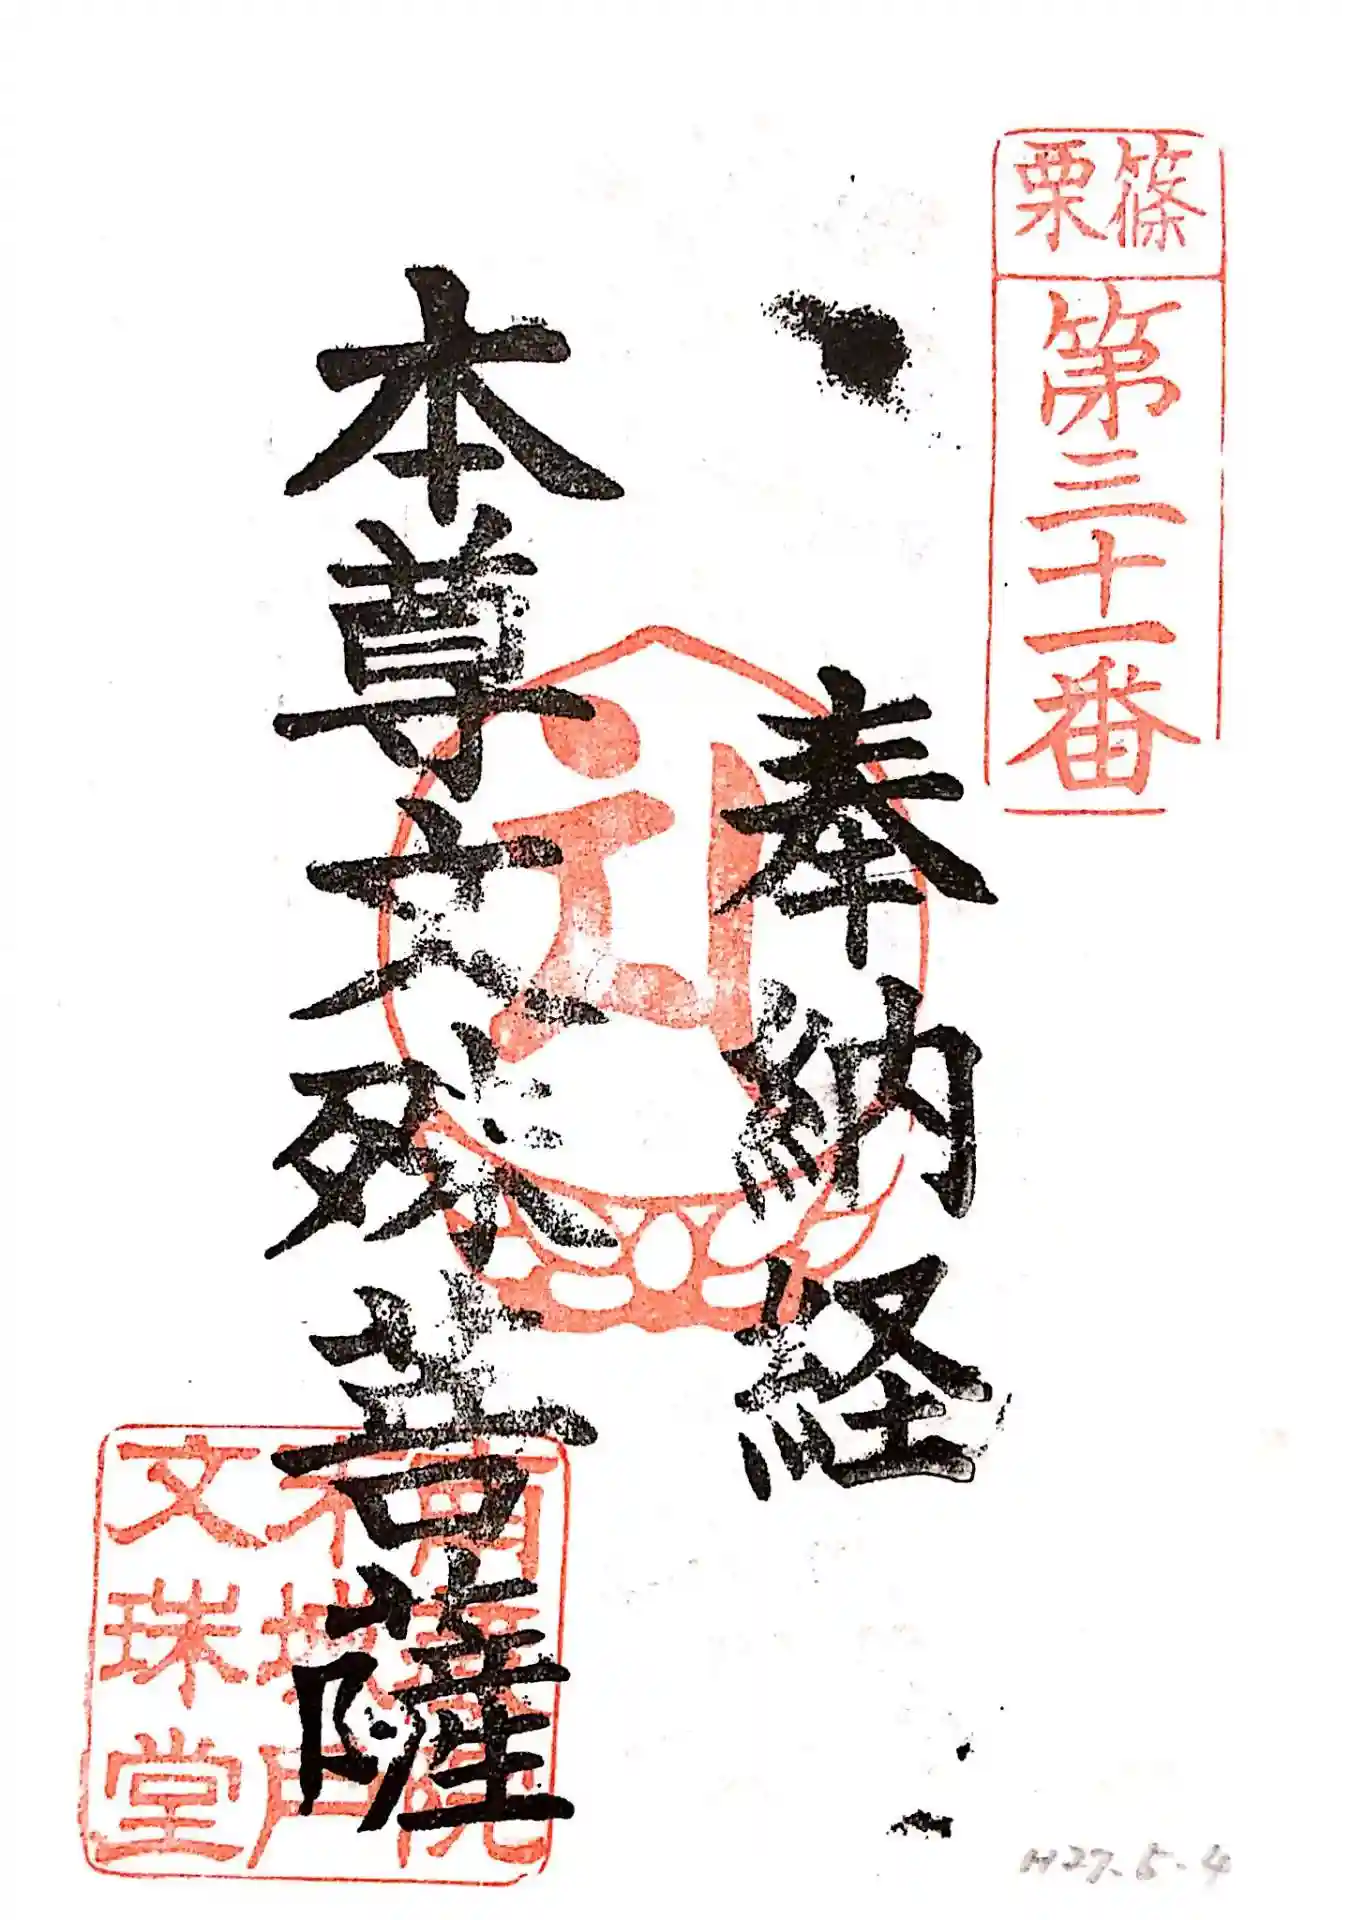 篠栗
第三十一番
奉納経
本尊文殊菩薩
南蔵院
城戸
文珠堂
H27.5.4